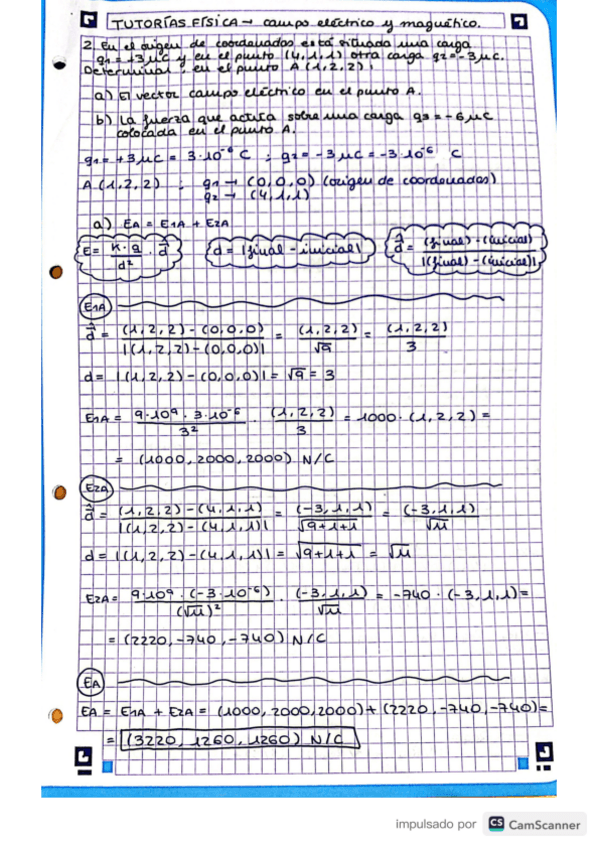 TUTORÍAS FÍSICA → campo eléctrico y magnético.
2. En el origen de coordenadas está situada una carga
q1 = +3 μC y en el punto (4,1,1) otra carga q2 = -3 μC.
Determinar, en el punto A (1,2,2):
a) El vector campo eléctrico en el punto A.
b) La fuerza que actúa sobre una carga q3 = -6 μC
colocada en el punto A.
q1 = +3 μC = 3·10⁻⁶ C ; q2 = -3 μC = -3·10⁻⁶ C
A (1,2,2) ; q1 → (0,0,0) (origen de coordenadas)
q2 → (4,1,1)
a) EA = E1A + E2A
E = K·q / d² · d̂
d = |final - inicial|
d̂ = (final) - (inicial) / |(final) - (inicial)|
E1A
d̂ = (1,2,2) - (0,0,0) / |(1,2,2) - (0,0,0)| = (1,2,2) / √9 = (1,2,2) / 3
d = |(1,2,2) - (0,0,0)| = √9 = 3
E1A = 9·10⁹ · 3·10⁻⁶ / 3² · (1,2,2) / 3 = 1000 · (1,2,2) =
= (1000, 2000, 2000) N/C
E2A
d̂ = (1,2,2) - (4,1,1) / |(1,2,2) - (4,1,1)| = (-3,1,1) / √9+1+1 = (-3,1,1) / √11
d = |(1,2,2) - (4,1,1)| = √9+1+1 = √11
E2A = 9·10⁹ · (-3·10⁻⁶) / (√11)² · (-3,1,1) / √11 = -740 · (-3,1,1) =
= (2220, -740, -740) N/C
EA
EA = E1A + E2A = (1000, 2000, 2000) + (2220, -740, -740) =
= (3220, 1260, 1260) N/C
impulsado por CS CamScanner